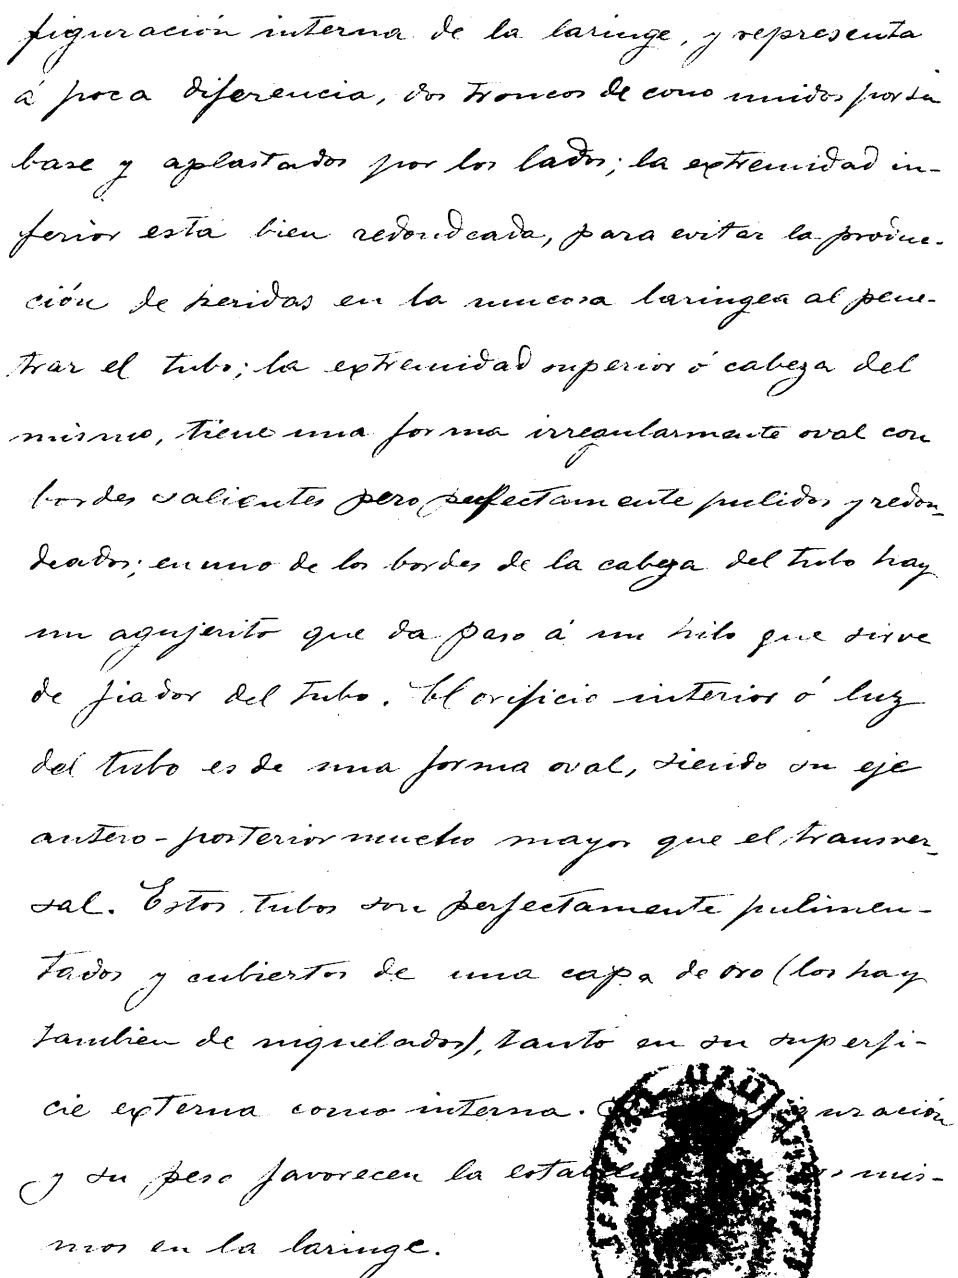 figuración interna de la laringe, y representa
á poca diferencia, dos troncos de cono unidos por su
base y aplastados por los lados; la extremidad in-
ferior está bien redondeada, para evitar la produc-
ción de heridas en la mucosa laringea al pene-
trar el tubo; la extremidad superior ó cabeza del
mismo, tiene una forma irregularmente oval con
bordes salientes pero perfectamente pulidos y redon-
deados; en uno de los bordes de la cabeza del tubo hay
un agujerito que da paso á un hilo que sirve
de fiador del tubo. El orificio interior ó luz
del tubo es de una forma oval, siendo su eje
antero-posterior mucho mayor que el transver-
sal. Estos tubos son perfectamente pulimen-
tados y cubiertos de una capa de oro (los hay
tambien de niquelados), tanto en su superfi-
cie externa como interna.
y su peso favorecen la mis-
mos en la laringe.